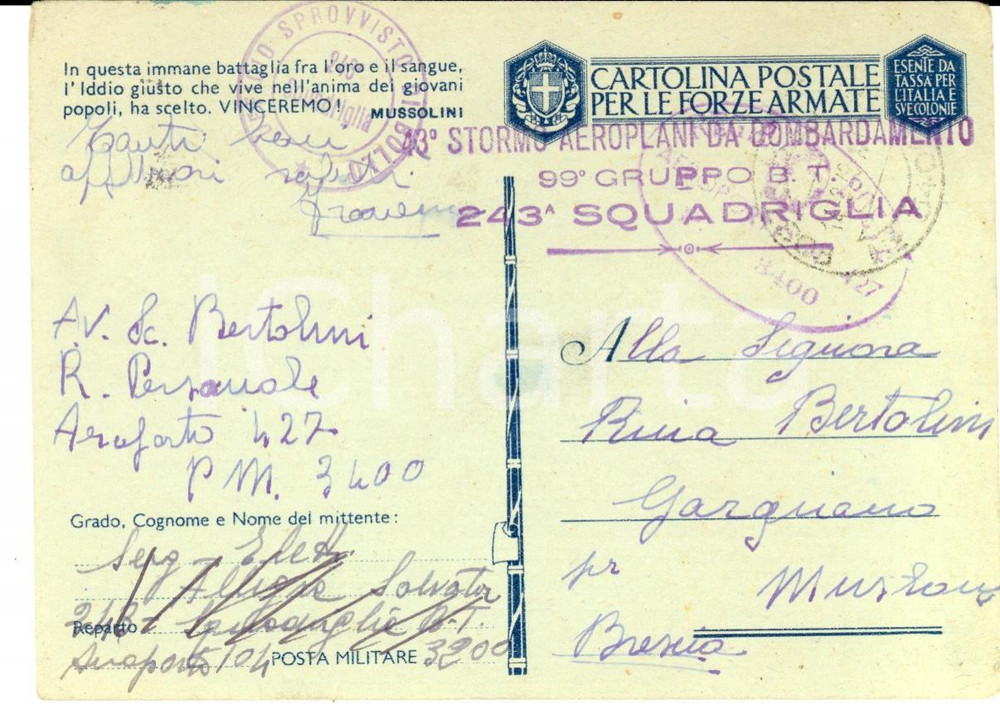 In questa immane battaglia fra l'oro e il sangue,
l'Iddio giusto che vive nell'anima dei giovani
popoli, ha scelto. VINCEREMO!
MUSSOLINI
CARTOLINA POSTALE
PER LE FORZE ARMATE
ESENTE DA
TASSA PER
L'ITALIA E
SVE COLONIE
SPROVVISTO
BOLLO
43° STORMO AEROPLANI DA BOMBARDAMENTO
99° GRUPPO B.T.
243ª SQUADRIGLIA
3400
Tanti cari
Av. Sc. Bertolini
R.
Aeroporto 427
P.M. 3400
Alla Signora
Rina Bertolini
Gargnano
pr
Brescia
Grado, Cognome e Nome del mittente:
Serg.
Salvator
Reparto
Aeroporto 104 POSTA MILITARE 3200
ICharta